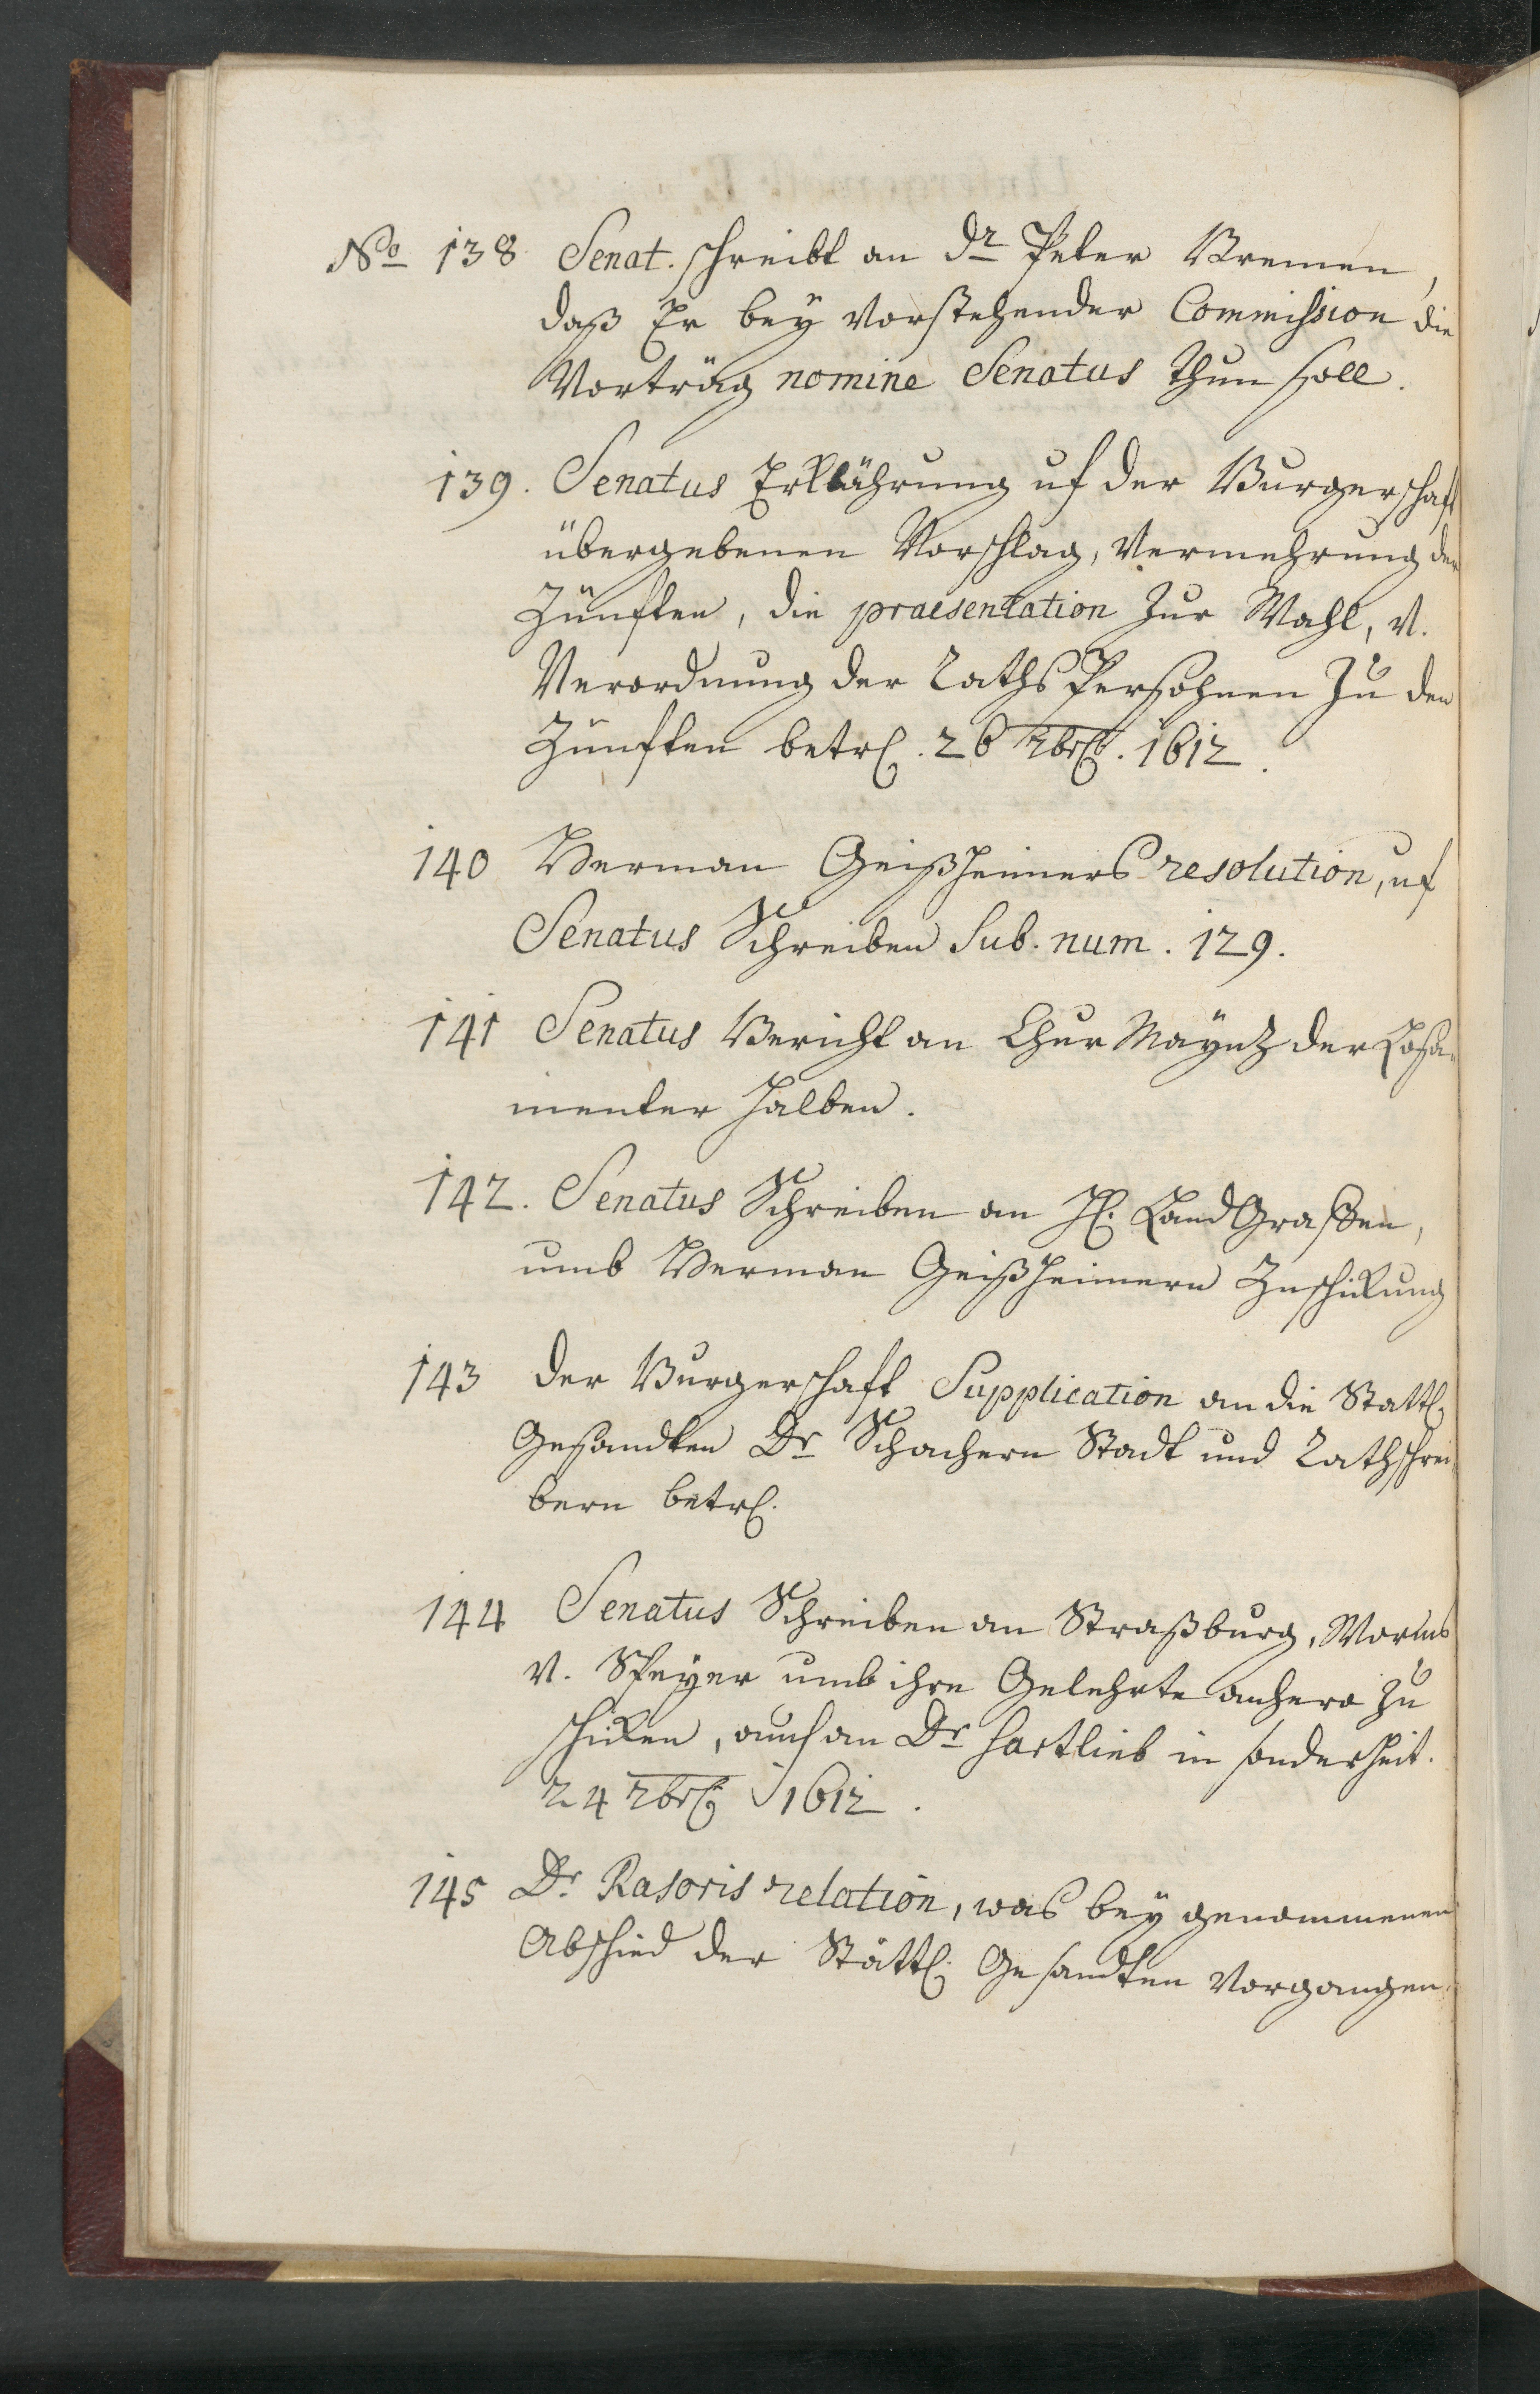 No 138 Senat. schreibt an Dr Peter Bremen,
daß Er bey vorstehender Commission die
Vorträg nomine Senatus thun soll.
139. Senatus Erklährung uf der Burgerschaft
übergebenen Vorschlag, Vermehrung der
Zünfften, die praesentation zur Wahl, v.
Verordnung der Raths Persohnen zu den
Zünfften betrl. 26 Xbris. 1612.
140 Herman Geißheimers resolution, uf
Senatus Schreiben sub. num. 129.
141 Senatus Bericht an Chur Mayntz der Losa-
menter halben.
142. Senatus Schreiben an H. Land Graffen,
umb Herman Geißheimern Zuschickung
143 der Burgerschaft Supplication an die Stättl.
Gesandten Dr Schachern Stadt und Rathschrei-
bern betrl.
144 Senatus Schreiben an Straßburg, Worms
v. Speyer umb ihre Gelehrte anhero zu
schicken, auch an Dr Hartlieb in sonderheit.
24 Xbris 1612.
145 Dr. Rasoris relation, was bey genommenen
Abschied der Stättl. Gesandten vorgangen.